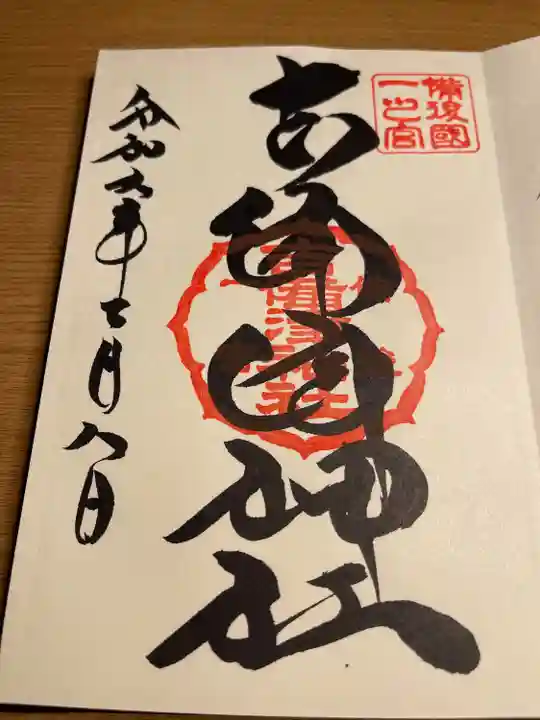 備後國
一之宮
吉備津神社
吉備津神社
令和六年七月八日